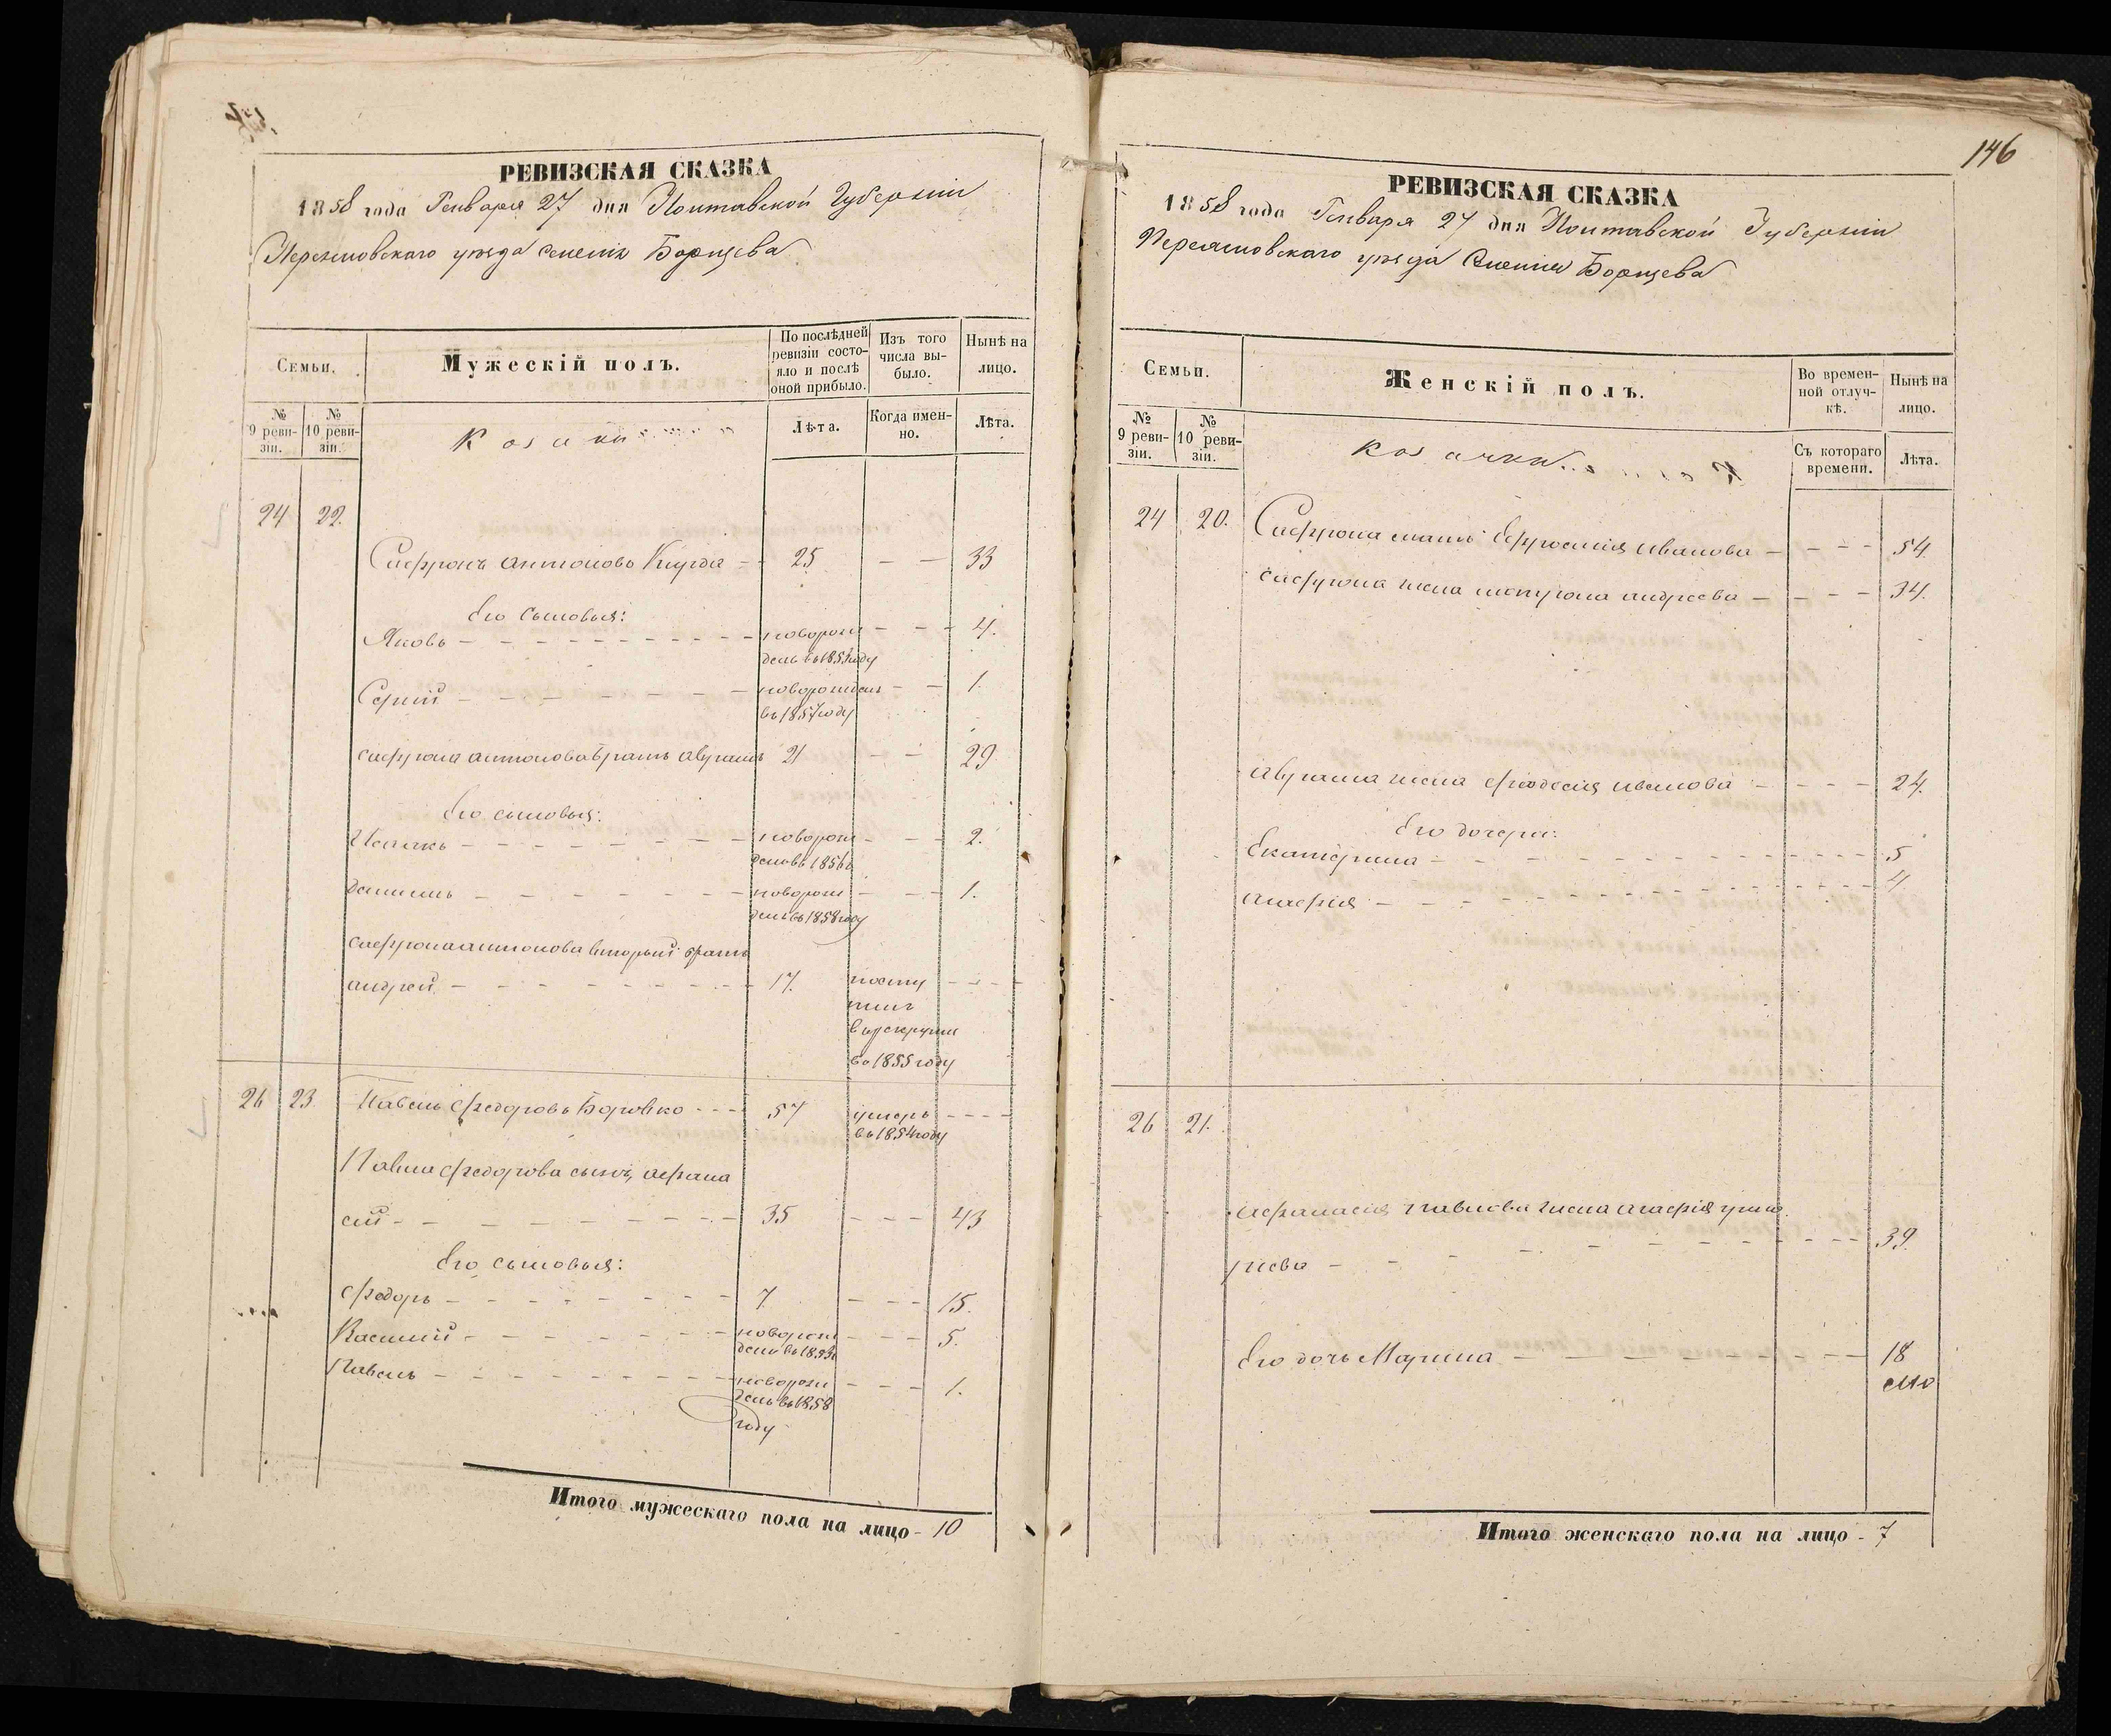 РЕВИЗСКАЯ СКАЗКА
1858 года Генваря 27 дня Полтавской Губерніи
Переясловскаго уезда селенія Борщева
Семьи.
Мужескій полъ.
По послѣдней ревизіи состояло и послѣ оной прибыло.
Изъ того числа выбыло.
Нынѣ на лицо.
№ 9 ревизіи.
№ 10 ревизіи.
Козаки
Лѣта.
Когда именно.
Лѣта.
24 22.
Сафронъ Антоновъ 25 — — 33
Его сыновья:
Яковъ — новорож — 4.
денъ въ 185 году
Сергій — новорожденъ — 1.
въ 1857 году
Сафрона Антонова братъ Аврамъ 21 — — 29
Его сыновья:
Исаакъ — новорож — 2.
денъ въ 1856
Даниилъ — новорож — 1.
денъ въ 1858 году
Сафрона Антонова вторый братъ
Андрей — 17. посту
пилъ
в рекруты
въ 1855 году
26 23 Павелъ Федоровъ 57 умеръ
въ 1854 году
Павла Федорова сынъ Афана
сій — 35 — 43
Его сыновья:
Федоръ — 7. — 15.
Василій — новорож — 5.
денъ въ 1853
Павелъ — новорож — 1.
денъ въ 1858
году
Итого мужескаго пола на лицо - 10
146
РЕВИЗСКАЯ СКАЗКА
1858 года Генваря 27 дня Полтавской Губерніи
Переясловскаго уезда Селенія Борщева
Семьи.
Женскій полъ.
Во временной отлучкѣ.
Нынѣ на лицо.
№ 9 ревизіи.
№ 10 ревизіи.
Козачки
Съ котораго времени.
Лѣта.
24 20. Сафрона мать Ефросинія Иванова — 54.
Сафрона жена Андреева — 34.
Аврама жена Феодосія Иванова — 24.
Его дочери:
Екатерина — 5
Агафія — 4.
26 21.
Афанасія Павлова жена Агафія Григо
рьева — 39.
Его дочь Марина — 18
Итого женскаго пола на лицо - 7